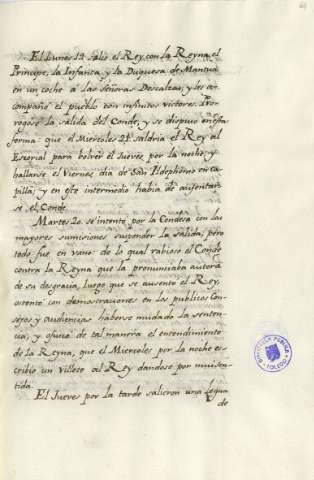 El Lunes 19 salió el Rey con la Reyna, el
Principe, la Infanta, y la Duquesa de Mantua
en un coche à las Señoras Descalzas, y les a-
compañó el pueblo con infinitos victores. Pro-
rogose la salida del Conde, y se dispuso en esta
forma: que el Miercoles 21 saldria el Rey al
Escorial para bolver el Jueves por la noche, y
hallarse el Viernes dia de San Ildephonso en ca-
pilla; y en este intermedio habia de ausentar-
se el Conde.
Martes 20 se intentó por la Condesa con las
mayores sumisiones suspender la salida; pero
todo fue en vano: de lo qual rabioso el Conde
contra la Reyna que la pronunciaba autora
de su desgracia, luego que se ausentó el Rey,
ostentó con demostraciones en los publicos Con-
sejos y Audiencias haberse mudado la senten-
cia; y ofuscó de tal manera el entendimiento
de la Reyna, que el Miercoles por la noche es-
cribio un villete al Rey dandose por mui sen-
tida.
El Jueves por la tarde salieron una legua
de
BIBLIOTECA PUBLICA
TOLEDO